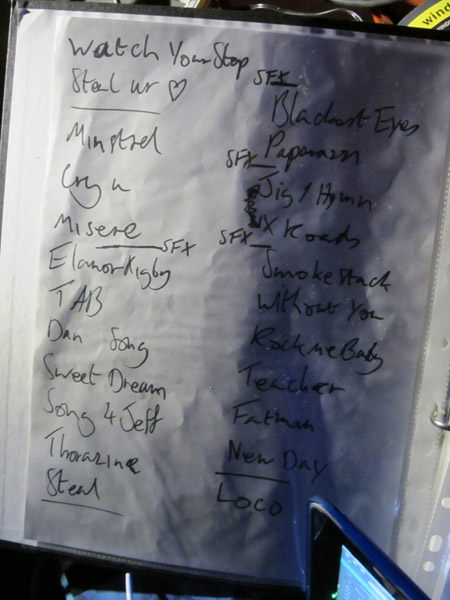 Watch Your Step
Steal ur ♡
Minstrel
Cry u
Misere
SFX
Elanor Rigby
TAB
Dan Song
Sweet Dream
Song 4 Jeff
Thorazine
Steal
SFX
Blackest Eyes
Paparazzi
SFX
Jig / Hymn
X Roads
SFX
Smokestack
Without You
Rock me Baby
Teacher
Fatman
New Day
LOCO
wind